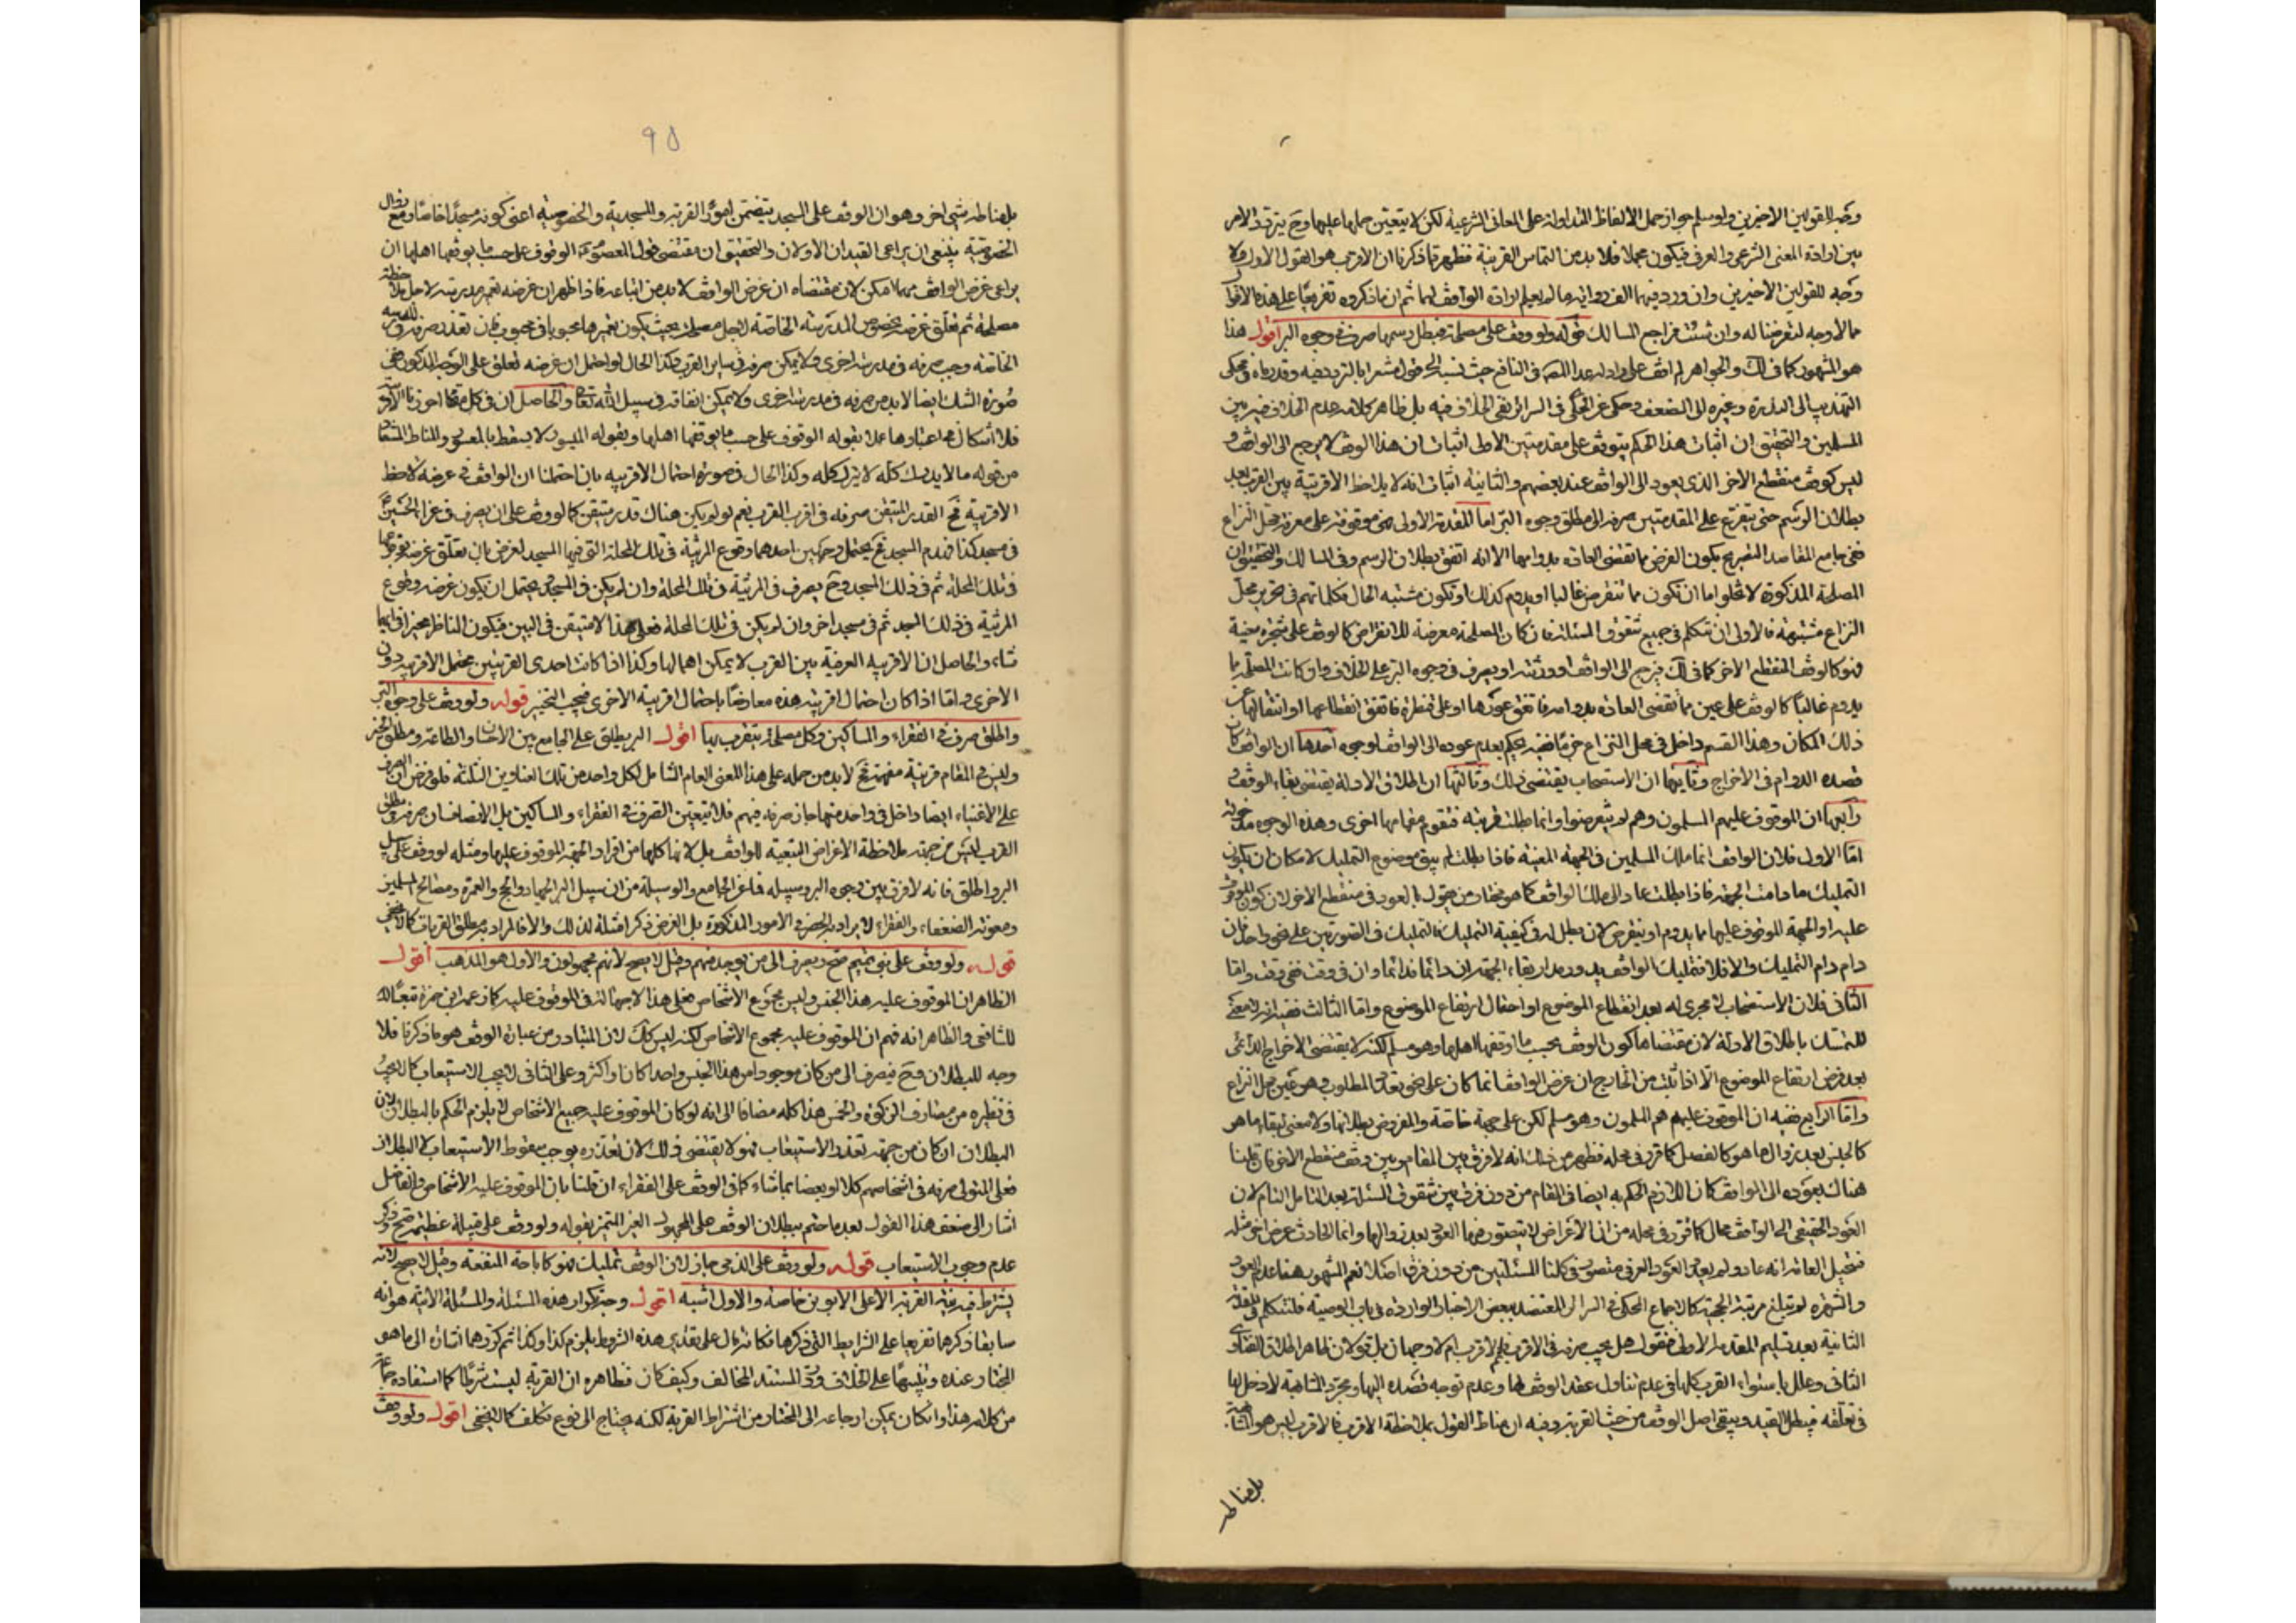 وجه للقولين الأخيرين ولو سلم جواز حمل الألفاظ المتداولة على المعاني الشرعية لكن لا يتعين حملها عليها وح يتردد الأمر
بين ارادة المعنى الشرعي والعرفي فيكون مجملا فلا بد من التماس القرينة فظهر مما ذكرنا ان الاقرب هو القول الاول ولا
وجه للقولين الأخيرين وان ورد فيهما الف رواية ما لم يعلم ارادة الواقف لهما ثم ان ما ذكروه تفريعا على هذه الاقوال
مما لا وجه لتعرضنا له وان شئت فراجع المسالك قوله ولو وقف على مصلحة فبطل رسمها صرف في وجوه البر اقول هذا
هو المشهور كما في لك والجواهر لم اقف على راد له عدا المص في النافع حيث نسبه الى قول مشعرا بالتردد فيه
المسلمين والتحقيق ان اثبات هذا الحكم يتوقف على مقدمتين الاولى اثبات ان هذا الوقف لا يرجع الى الواقف و
ليس كوقف منقطع الآخر الذي يعود الى الواقف عند بعضهم والثانية اثبات انه لا يلاحظ الاقربية بين القرب بعد
بطلان الرسم حتى يتفرع على المقدمتين صرفه الى مطلق وجوه البر اما المقدمة الاولى فهي موقوفة على معرفة محل النزاع
ففي جامع المقاصد التصريح بكون الفرض ما تقتضي العادة بدوامها الا انه اتفق بطلان الرسم وفي المسالك والتحقيق ان
المصلحة المذكورة لا تخلو اما ان تكون مما تنقرض غالبا او يدوم كذلك او تكون مشتبه الحال فكلماتهم في تحرير محل
النزاع مشتبهة فالأولى ان نتكلم في جميع شقوق المسئلة فان كان المصلحة معرضة للانقراض كالوقف على شجرة معينة
فهو كالوقف المنقطع الآخر كما في لك فيرجع الى الواقف او ورثته او يصرف في وجوه البر على الخلاف وان كانت المصلحة مما
يدوم غالبا كالوقف على عين مما تقضى العادة بدوامه فاتفق غورها او على قنطرة فاتفق انقطاعها او انتقالها عن
ذلك المكان وهذا القسم داخل في محل النزاع جزما فقد يحكم بعدم عوده الى الواقف لوجوه احدها ان الواقف كان
قصده الدوام في الاخراج وثانيها ان الاستصحاب يقتضي ذلك وثالثها ان اطلاق الادلة يقتضي بقاء الوقف و
رابعها ان الموقوف عليهم المسلمون وهم لم ينقرضوا وانما بطلت قربة فتقوم مقامها اخرى وهذه الوجوه مخدوشة
اما الاول فلان الواقف انما ملك المسلمين في الجهة المعينة فاذا بطلت لم يبق موضوع التمليك لامكان ان يكون
التمليك ما دامت الجهة فاذا بطلت عاد الى ملك الواقف كما هو مختار من يقول بالعود في منقطع الآخر لان كون الموقوف
عليه او الجهة الموقوف عليها مما يدوم او ينقرض لا دخل له في كيفية التمليك فالتمليك في الصورتين على نحو واحد فان
دام دام التمليك والا فلا فتمليك الواقف يدور مدار بقاء الجهة ان دائما فدائما وان في وقت ففي وقت واما
الثاني فلان الاستصحاب لا مجرى له بعد انقطاع الموضوع او احتمال ارتفاع الموضوع واما الثالث ففيه انه لا معنى
للتمسك باطلاق الادلة لان مقتضاها كون الوقف بحسب ما اوقفها اهلها وهو مسلم لكنه لا يقتضي الاخراج الدائمي
بعد فرض ارتفاع الموضوع الا اذا ثبت من الخارج ان غرض الواقف انما كان على نحو تعدد المطلوب وهو عين محل النزاع
واما الرابع ففيه ان الموقوف عليهم هم المسلمون وهو مسلم لكن على جهة خاصة والمفروض بطلانها ولا معنى لبقاء ما هو
كالجنس بعد زوال ما هو كالفصل كما قرر في محله فظهر من ذلك انه لا فرق بين المقام وبين وقف منقطع الآخر فان قلنا
هناك بعوده الى الواقف كان اللازم الحكم به ايضا في المقام من دون فرق بين شقوق المسئلة بعد التأمل التام لان
العود الحقيقي الى الواقف محال كما قرر في محله من ان الاعراض لا يتصور فيها العود بعد زوالها وانما الحادث عرض آخر مثله
فتخيل العامة انه عاد ولم يعد العود العرفي متصور في كلتا المسئلتين من دون فرق اصلا نعم المشهور هنا عدم العود
والشهرة لم تبلغ مرتبة الحجية كالاجماع المحكي في السرائر المعتضد ببعض الاخبار الواردة في باب الوصية فلنتكلم في المقدمة
الثانية بعد تسليم المقدمة الاولى فنقول هل يجب صرفه في الاقرب فالاقرب ام لا وجهان بل قولان ظاهر اطلاق الفتاوى
الثاني وعلل باستواء القرب كلها في عدم تناول عقد الوقف لها وعدم توجه قصده اليها ومجرد المشابهة لا دخل لها
في تعلقه فيبطل القيد ويبقى اصل الوقف من حيث القربة وفيه ان مناط القول بملاحظة الاقرب فالاقرب ليس هو المشابهة
بل مناطه
95
بل مناطه شيء آخر وهو ان الوقف على المسجد يتضمن امورا القربة والمسجدية والخصوصية اعني كونه مسجدا خاصا ومع زوال
الخصوصية ينبغي ان يراعى القيدان الاولان والتحقيق ان مقتضى قول المعصوم ع الوقوف على حسب ما يوقفها اهلها ان
يراعى غرض الواقف مهما امكن لان مقتضاه ان غرض الواقف لا بد من اتباعه فاذا ظهر ان غرضه تعمير مدرسة لاجل ملاحظة
مصلحة ثم تعلق غرضه بخصوص المدرسة الخاصة لاجل مصلحة بحيث يكون تعميرها محبوبا في محبوب فان تعذر صرفه في المدرسة
الخاصة وجب صرفه في مدرسة اخرى ولا يمكن صرفه في ساير القرب وكذا الحال لو احتمل ان غرضه تعلق على الوجه المذكور ففي
صورة الشك ايضا لا بد من صرفه في مدرسة اخرى ولا يمكن انفاقه في سبيل الله تعالى والحاصل ان في كل مقام احرزنا الاقربية
فلا اشكال في اعتبارها عملا بقوله الوقوف على حسب ما يوقفها اهلها وبقوله الميسور لا يسقط بالمعسور والمناط المستفاد
من قوله ما لا يدرك كله لا يترك كله وكذا الحال في صورة احتمال الاقربية بان احتملنا ان الواقف في غرضه لاحظ
الاقربية فح القدر المتيقن صرفه في اقرب القرب نعم لو لم يكن هناك قدر متيقن كما لو وقف على ان يصرف في عزاء الحسين ع
في مسجد كذا فهدم المسجد فح يحتمل وجهين احدهما وقوع المرثية في تلك المحلة التي فيها المسجد لغرض بان تعلق غرضه بوقوعها
في تلك المحلة ثم في ذلك المسجد وح يصرف في المرثية في تلك المحلة وان لم يكن في المسجد ويحتمل ان يكون غرضه وقوع
المرثية في ذلك المسجد ثم في مسجد آخر وان لم يكن في تلك المحلة فعلى هذا لا متيقن في البين فيكون الناظر مخيرا في ايهما
شاء والحاصل ان الاقربية العرفية بين القرب لا يمكن اهمالها وكذا اذا كانت احدى القربتين محتمل الاقربية دون
الاخرى واما اذا كان احتمال اقربية هذه معارضا باحتمال اقربية الاخرى فيجب التخيير قوله ولو وقف على وجوه البر
واطلق صرف في الفقراء والمساكين وكل مصلحة يتقرب بها اقول البر يطلق على الجامع بين الاحسان والطاعة ومطلق الخير
وليس في المقام قرينة مفهمة فح لا بد من حمله على هذا المعنى العام الشامل لكل واحد من تلك العناوين الثلثة فلو فرض ان الصرف
على الاغنياء ايضا داخل في واحد منها جاز صرفه فيهم فلا يتعين الصرف في الفقراء والمساكين بل الانصاف ان صرفه في مطلق
القرب ليس من جهة ملاحظة الاغراض التبعية للواقف بل لانها كلها من افراد الجهة الموقوف عليها ومثله لو وقف على سبيل
البر واطلق فانه لا فرق بين وجوه البر وسبيله فما عن الجامع والوسيلة من ان سبيل البر الجهاد والحج والعمرة ومصالح المسلمين
ومعونة الضعفاء والفقراء لا يراد به الحصر في الامور المذكورة بل الغرض ذكر امثلة لذلك والا فالمراد به مطلق القربات كما لا يخفى
قوله ولو وقف على بني تميم صح ويصرف الى من يوجد منهم وقيل لا يصح لانهم مجهولون والاول هو المذهب اقول
الظاهر ان الموقوف عليه هذا الجنس وليس مجموع الاشخاص فعلى هذا لا جهالة في الموقوف عليه كما زعمه ابن حمزة تبعا
للشافعي والظاهر انه فهم ان الموقوف عليه مجموع الاشخاص لكنه ليس كك لان المتبادر من عبارة الوقف هو ما ذكرنا فلا
وجه للبطلان فح فيصرف الى من كان موجودا من هذا الجنس واحدا كان او اكثر وعلى الثاني لا يجب الاستيعاب كما لا يجب
في نظيره من مصارف الزكوة والخمس هذا كله مضافا الى انه لو كان الموقوف عليه جميع الاشخاص لا يلزم الحكم بالبطلان لان
البطلان ان كان من جهة تعذر الاستيعاب فهو لا يقتضي ذلك لان تعذره يوجب سقوط الاستيعاب لا البطلان
فعلى المتولي صرفه في اشخاصهم كلا او بعضا بما شاء كما في الوقف على الفقراء ان قلنا بان الموقوف عليه الاشخاص والفاضل
اشار الى ضعف هذا القول بعد ما ختم ببطلان الوقف على المجهول الغير المتميز بقوله ولو وقف على قبيلة عظيمة صح وذكر
عدم وجوب الاستيعاب قوله ولو وقف على الذمي جاز لان الوقف تمليك فهو كاباحة المنفعة وقيل لا يصح لانه
يشترط فيه نية القربة الا على الابوين خاصة والاول اشبه اقول وجه تكرار هذه المسئلة والمسئلة الآتية هو انه
سابقا ذكرها تفريعا على الشرايط التي ذكرها فكانه قال على تقدير هذه الشروط يلزم كذا وكذا ثم كررها اشارة الى ما هو
المختار عنده وتنبيها على الخلاف ورد المستند المخالف وكيف كان فظاهره ان القربة ليست شرطا كما استفاده جماعة
من كلامه هذا وان كان يمكن ارجاعه الى المختار من اشتراط القربة لكنه يحتاج الى نوع تكلف كما لا يخفى اقول ولو وقف